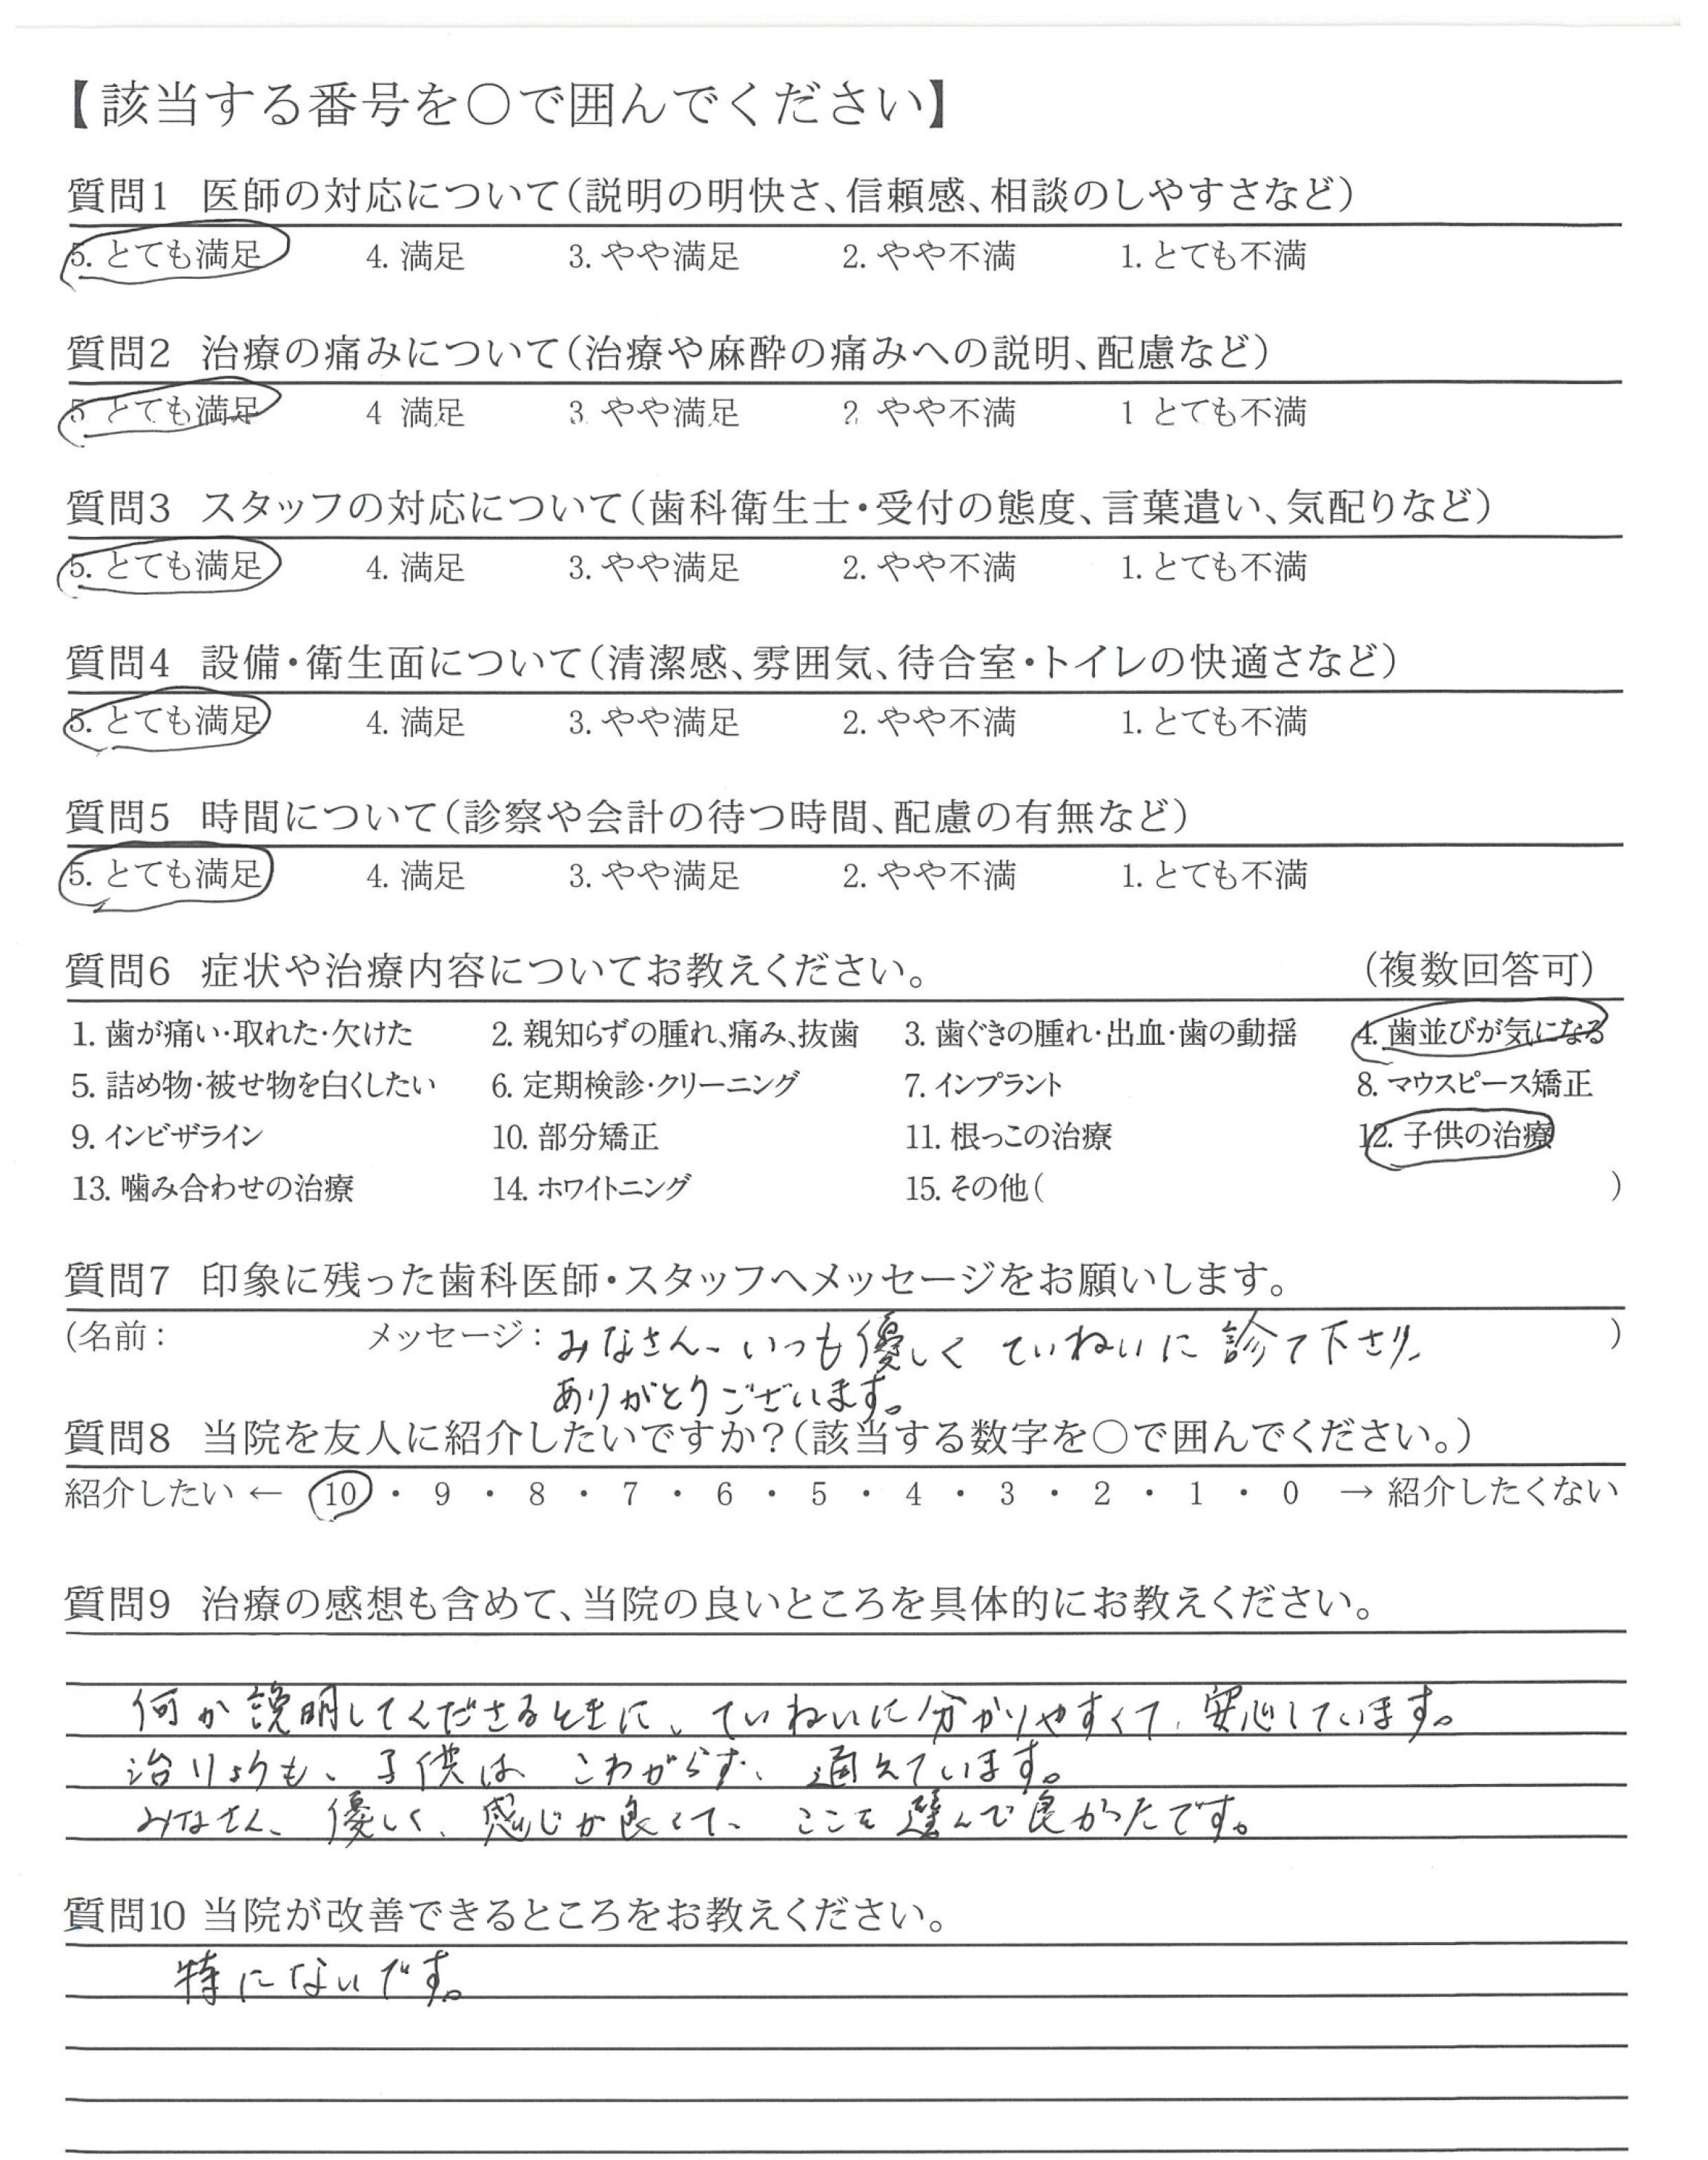 【該当する番号を○で囲んでください】
質問1 医師の対応について(説明の明快さ、信頼感、相談のしやすさなど)
5. とても満足 4. 満足 3. やや満足 2. やや不満 1. とても不満
質問2 治療の痛みについて(治療や麻酔の痛みへの説明、配慮など)
5 とても満足 4 満足 3 やや満足 2 やや不満 1 とても不満
質問3 スタッフの対応について(歯科衛生士・受付の態度、言葉遣い、気配りなど)
5. とても満足 4. 満足 3. やや満足 2. やや不満 1. とても不満
質問4 設備・衛生面について(清潔感、雰囲気、待合室・トイレの快適さなど)
5. とても満足 4. 満足 3. やや満足 2. やや不満 1. とても不満
質問5 時間について(診察や会計の待つ時間、配慮の有無など)
5. とても満足 4. 満足 3. やや満足 2. やや不満 1. とても不満
質問6 症状や治療内容についてお教えください。 (複数回答可)
1. 歯が痛い・取れた・欠けた 2. 親知らずの腫れ、痛み、抜歯 3. 歯ぐきの腫れ・出血・歯の動揺 4. 歯並びが気になる
5. 詰め物・被せ物を白くしたい 6. 定期検診・クリーニング 7. インプラント 8. マウスピース矯正
9. インビザライン 10. 部分矯正 11. 根っこの治療 12. 子供の治療
13. 噛み合わせの治療 14. ホワイトニング 15. その他( )
質問7 印象に残った歯科医師・スタッフへメッセージをお願いします。
(名前: メッセージ: みなさん、いつも優しく ていねいに 診て下さり、 )
ありがとうございます。
質問8 当院を友人に紹介したいですか?(該当する数字を○で囲んでください。)
紹介したい ← 10 ・ 9 ・ 8 ・ 7 ・ 6 ・ 5 ・ 4 ・ 3 ・ 2 ・ 1 ・ 0 → 紹介したくない
質問9 治療の感想も含めて、当院の良いところを具体的にお教えください。
何か説明してくださるときに、ていねいに分かりやすくて、安心しています。
治りょうも、子供は こわがらず、通えています。
みなさん、優しく、感じが良くて、ここを選んで良かったです。
質問10 当院が改善できるところをお教えください。
特にないです。